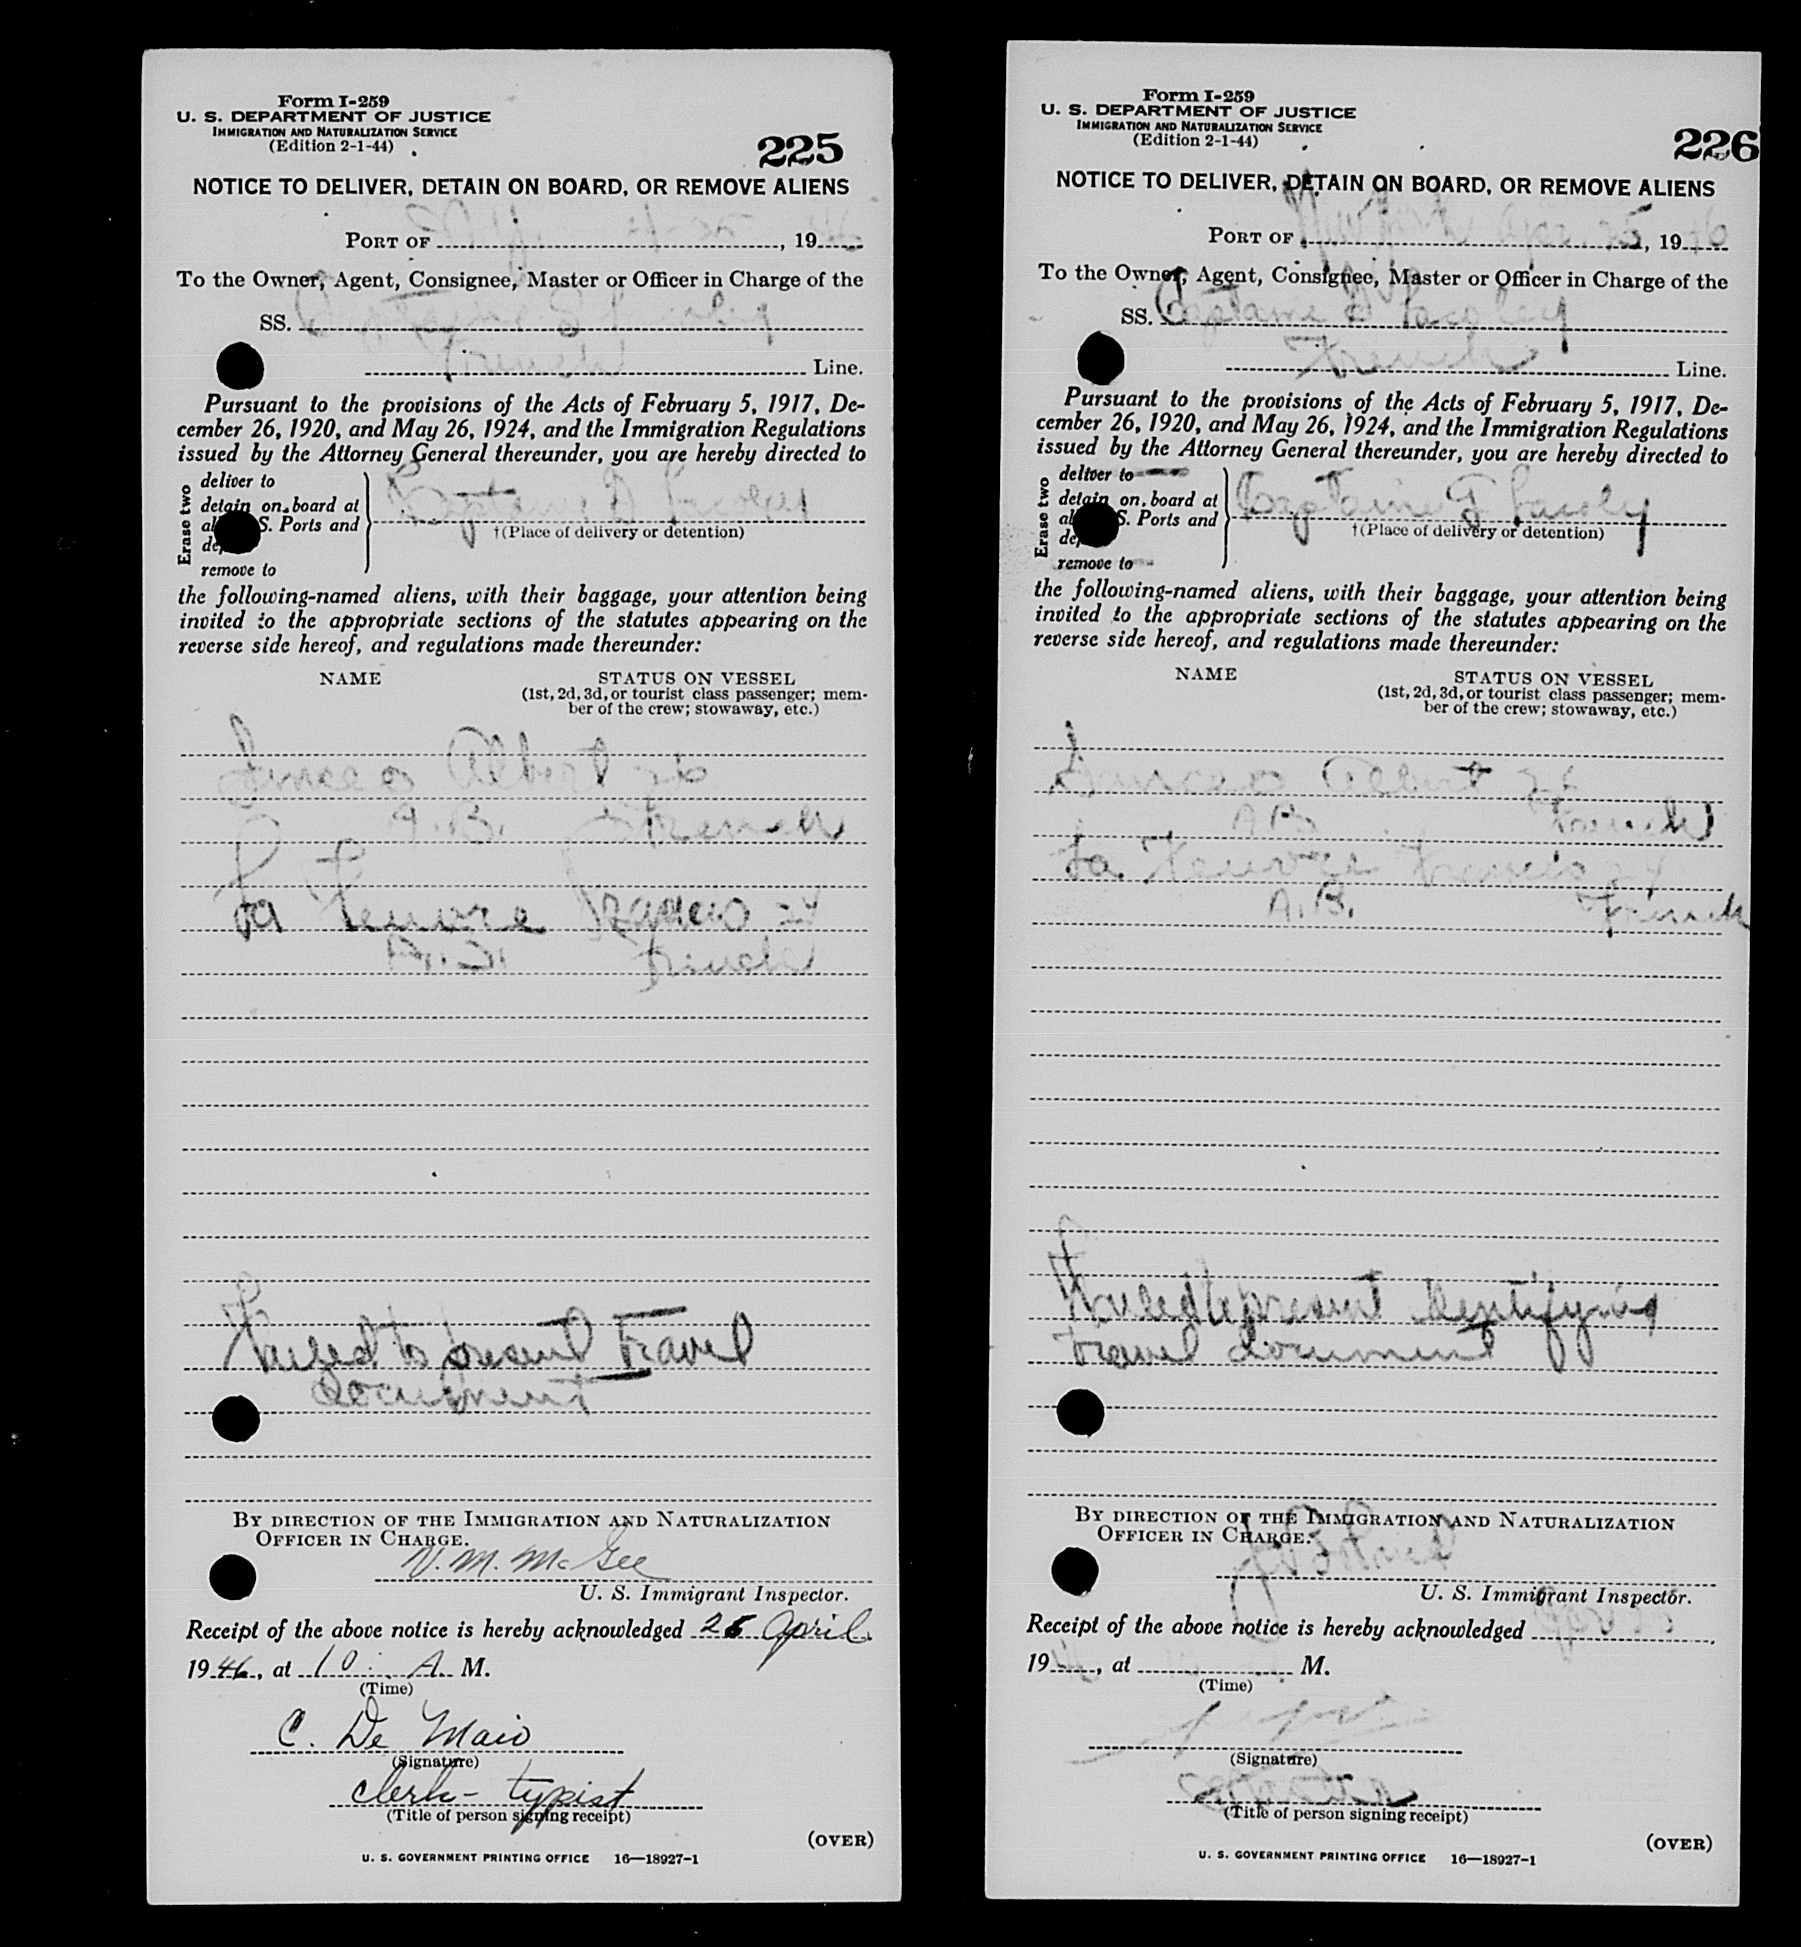 Form I-259
U. S. DEPARTMENT OF JUSTICE
IMMIGRATION AND NATURALIZATION SERVICE
(Edition 2-1-44)
225
NOTICE TO DELIVER, DETAIN ON BOARD, OR REMOVE ALIENS
PORT OF , 19
To the Owner, Agent, Consignee, Master or Officer in Charge of the
SS.
French Line.
Pursuant to the provisions of the Acts of February 5, 1917, De-
cember 26, 1920, and May 26, 1924, and the Immigration Regulations
issued by the Attorney General thereunder, you are hereby directed to
Erase two
deliver to
detain on board at
al S. Ports and
de
remove to
†(Place of delivery or detention)
the following-named aliens, with their baggage, your attention being
invited to the appropriate sections of the statutes appearing on the
reverse side hereof, and regulations made thereunder:
NAME STATUS ON VESSEL
(1st, 2d, 3d, or tourist class passenger; mem-
ber of the crew; stowaway, etc.)
Albert
French
French
Failed to present travel
document
BY DIRECTION OF THE IMMIGRATION AND NATURALIZATION
OFFICER IN CHARGE.
V. M. McGee
U. S. Immigrant Inspector.
Receipt of the above notice is hereby acknowledged April
1946, at 10 A. M.
(Time)
C. De Maio
(Signature)
clerk-typist
(Title of person signing receipt)
(OVER)
U. S. GOVERNMENT PRINTING OFFICE 16—18927-1
Form I-259
U. S. DEPARTMENT OF JUSTICE
IMMIGRATION AND NATURALIZATION SERVICE
(Edition 2-1-44)
226
NOTICE TO DELIVER, DETAIN ON BOARD, OR REMOVE ALIENS
PORT OF , 19
To the Owner, Agent, Consignee, Master or Officer in Charge of the
SS.
French Line.
Pursuant to the provisions of the Acts of February 5, 1917, De-
cember 26, 1920, and May 26, 1924, and the Immigration Regulations
issued by the Attorney General thereunder, you are hereby directed to
Erase two
deliver to
detain on board at
al S. Ports and
de
remove to
†(Place of delivery or detention)
the following-named aliens, with their baggage, your attention being
invited to the appropriate sections of the statutes appearing on the
reverse side hereof, and regulations made thereunder:
NAME STATUS ON VESSEL
(1st, 2d, 3d, or tourist class passenger; mem-
ber of the crew; stowaway, etc.)
Albert
A.B. French
A.B. French
Failed to present identifying
travel document
BY DIRECTION OF THE IMMIGRATION AND NATURALIZATION
OFFICER IN CHARGE.
U. S. Immigrant Inspector.
Receipt of the above notice is hereby acknowledged
19 , at M.
(Time)
(Signature)
(Title of person signing receipt)
(OVER)
U. S. GOVERNMENT PRINTING OFFICE 16—18927-1